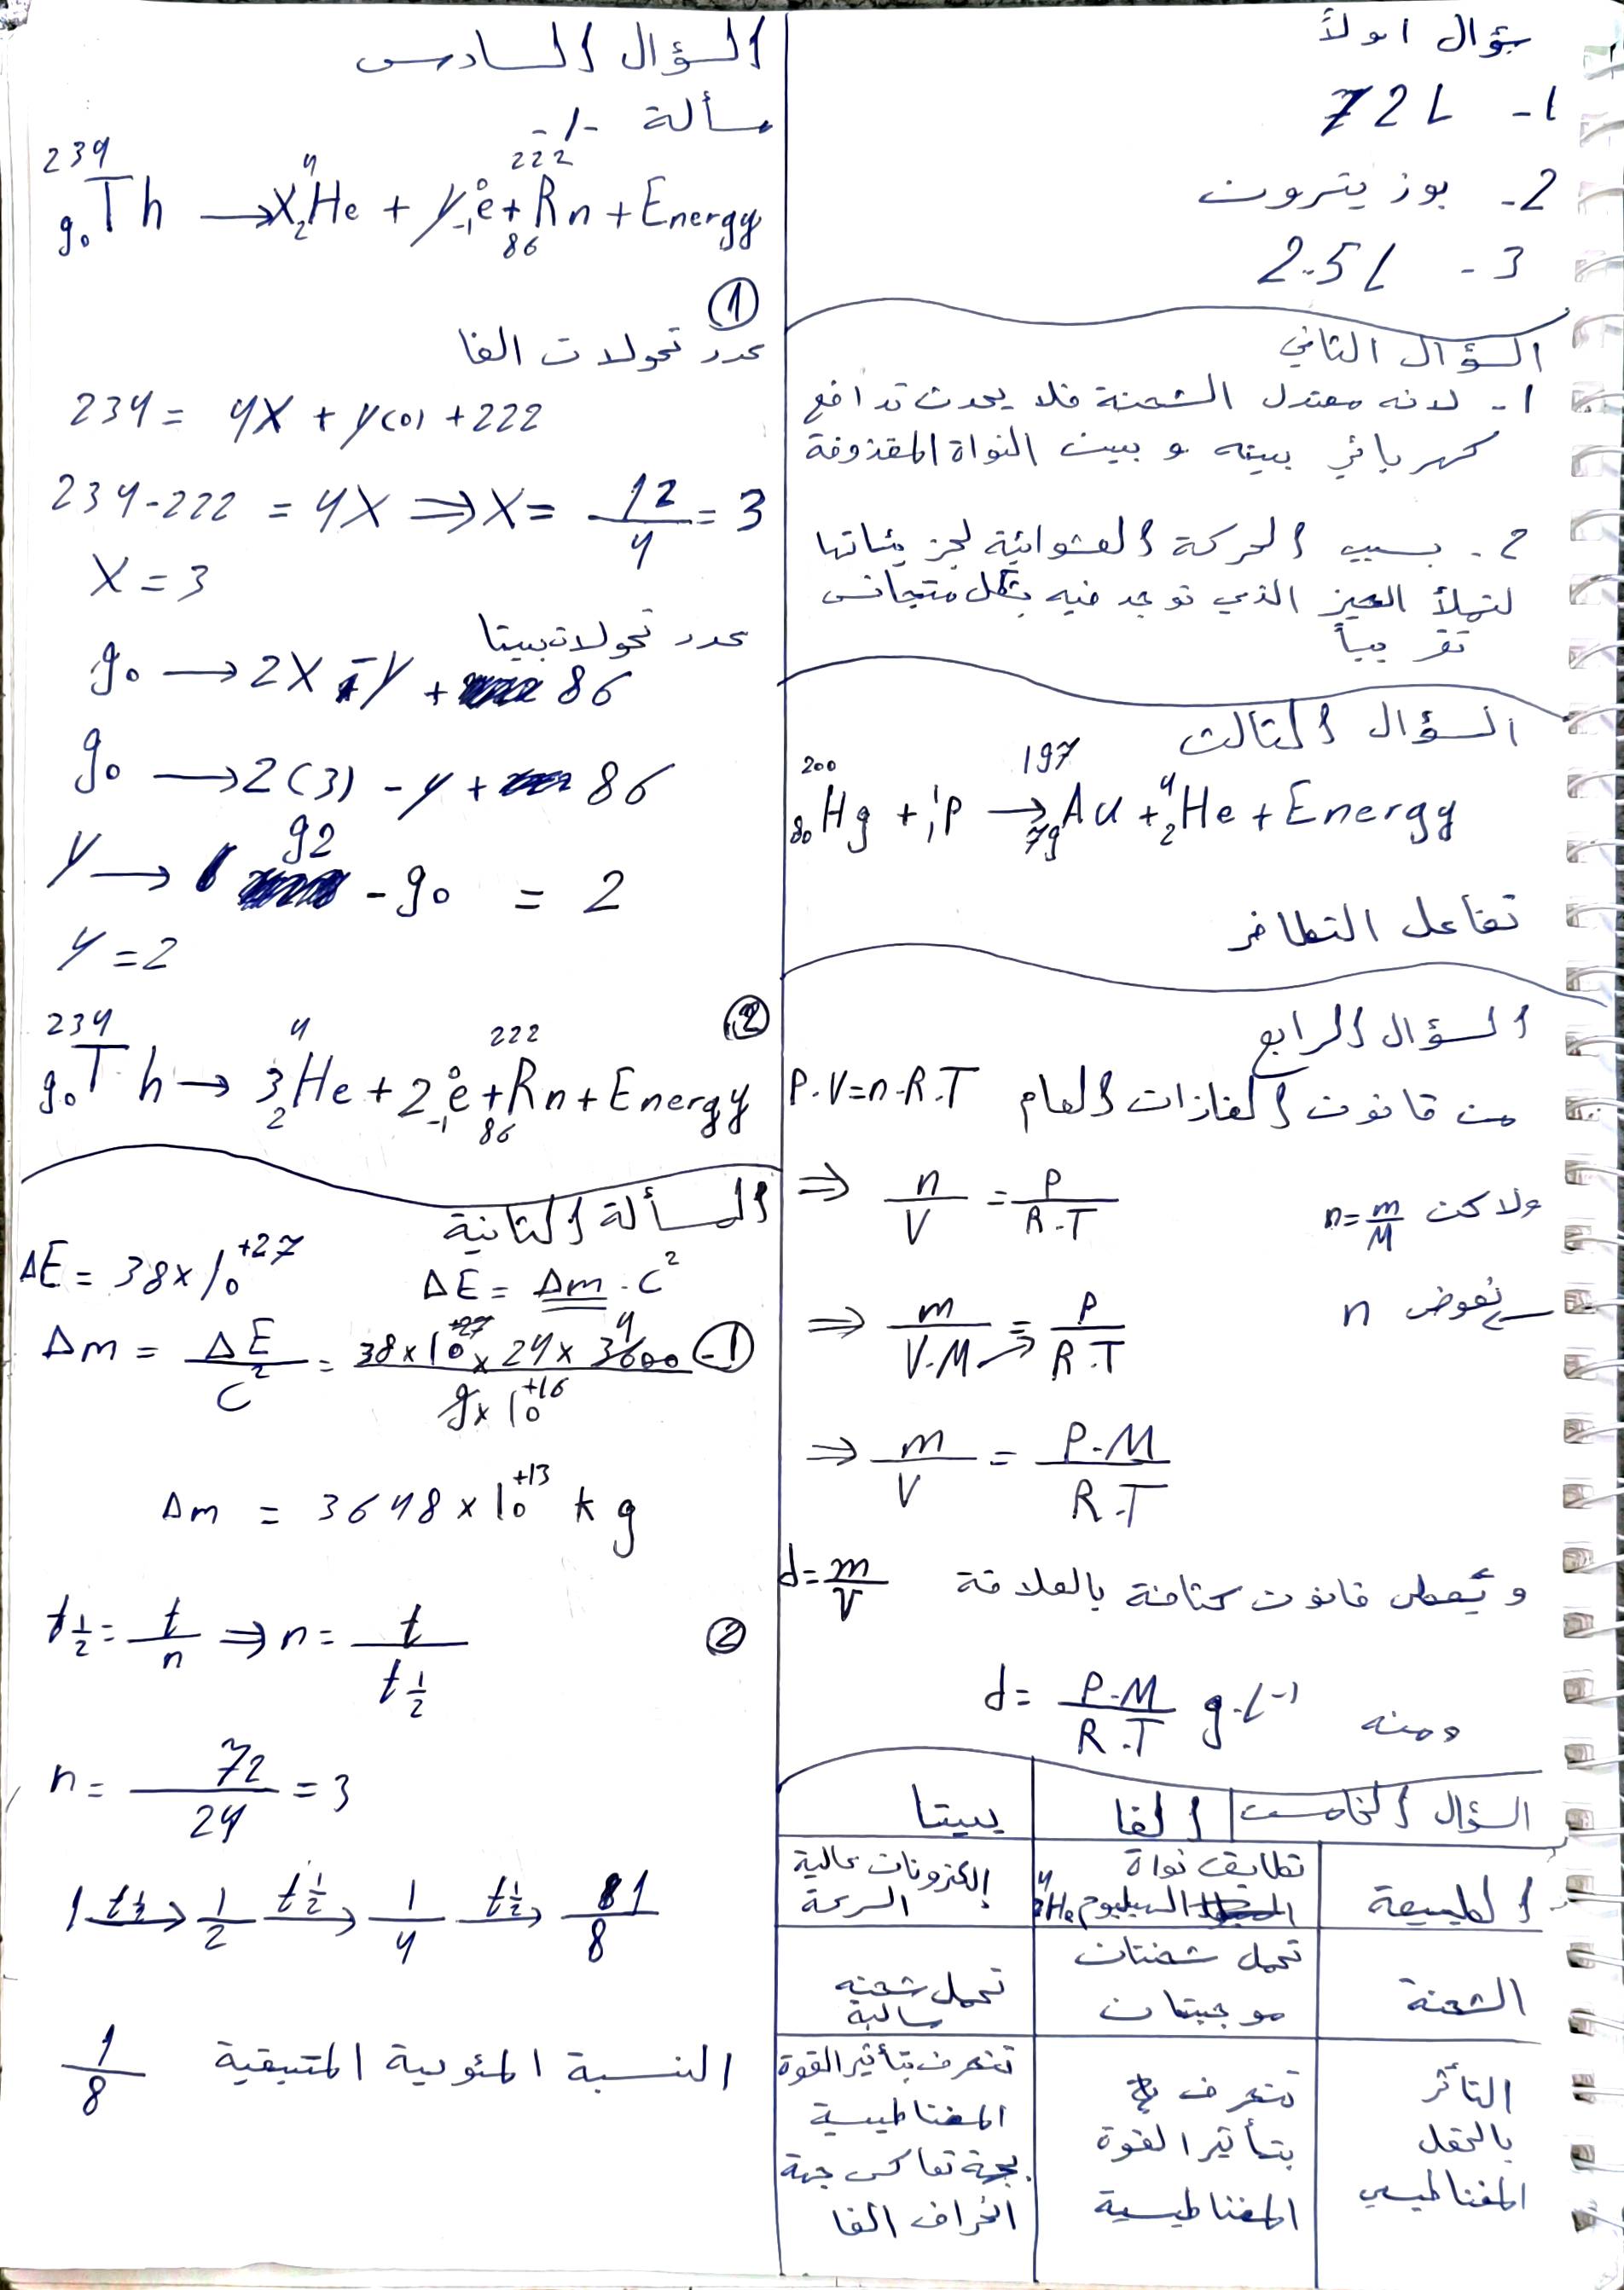 سؤال اولاً
1- 72L
2- بوزيترون
3- 2.5L
السؤال الثاني
1- لانه معتدل الشحنة فلا يحدث تدافع
كهربائي بينه و بين النواة المقذوفة
2- بسبب الحركة العشوائية لجزيئاتها
لتملأ الحيز الذي توجد فيه بشكل متجانس
تقريباً
السؤال الثالث
²⁰⁰₈₀Hg + ¹₁P → ¹⁹⁷₇₉Au + ⁴₂He + Energy
تفاعل التطافر
السؤال الرابع
من قانون الغازات العام P.V=n.R.T
⇒ n/V = P/R.T ولاكن n=m/M
⇒ m/V.M = P/R.T نعوض n
⇒ m/V = P.M/R.T
و يُعطى قانون كثافة بالعلاقة d=m/V
ومنه d= P.M/R.T g.L⁻¹
السؤال الخامس | الفا | بيتا
الطبيعة | تطابق نواة الهيليوم ⁴₂He | إلكترونات عالية السرعة
الشحنة | تحمل شحنتان موجبتان | تحمل شحنه سالبة
التأثر بالحقل المغناطيسي | تنحرف بتأثير القوة المغناطيسية | تنحرف بتأثير القوة المغناطيسية بجهة تعاكس جهة انحراف الفا
السؤال السادس
مسألة -1-
²³⁴₉₀Th → X⁴₂He + Y⁰₋₁e + ²²²₈₆Rn + Energy
①
عدد تحولات الفا
234 = 4X + Y(0) + 222
234-222 = 4X ⇒ X = 12/4 = 3
X = 3
عدد تحولات بيتا
90 → 2X - Y + 86
90 → 2(3) - Y + 86
Y → 92 - 90 = 2
Y = 2
②
²³⁴₉₀Th → 3⁴₂He + 2⁰₋₁e + ²²²₈₆Rn + Energy
المسألة الثانية
ΔE = 38×10⁺²⁷ ΔE = Δm . C²
Δm = ΔE/C² = 38×10⁺²⁷ × 24 × 3600 / 9×10⁺¹⁶ -①
Δm = 3648 × 10⁺¹³ kg
t½ = t/n ⇒ n = t/t½ ②
n = 72/24 = 3
1 t½→ 1/2 t½→ 1/4 t½→ 1/8
النسبة المئوية المتبقية 1/8